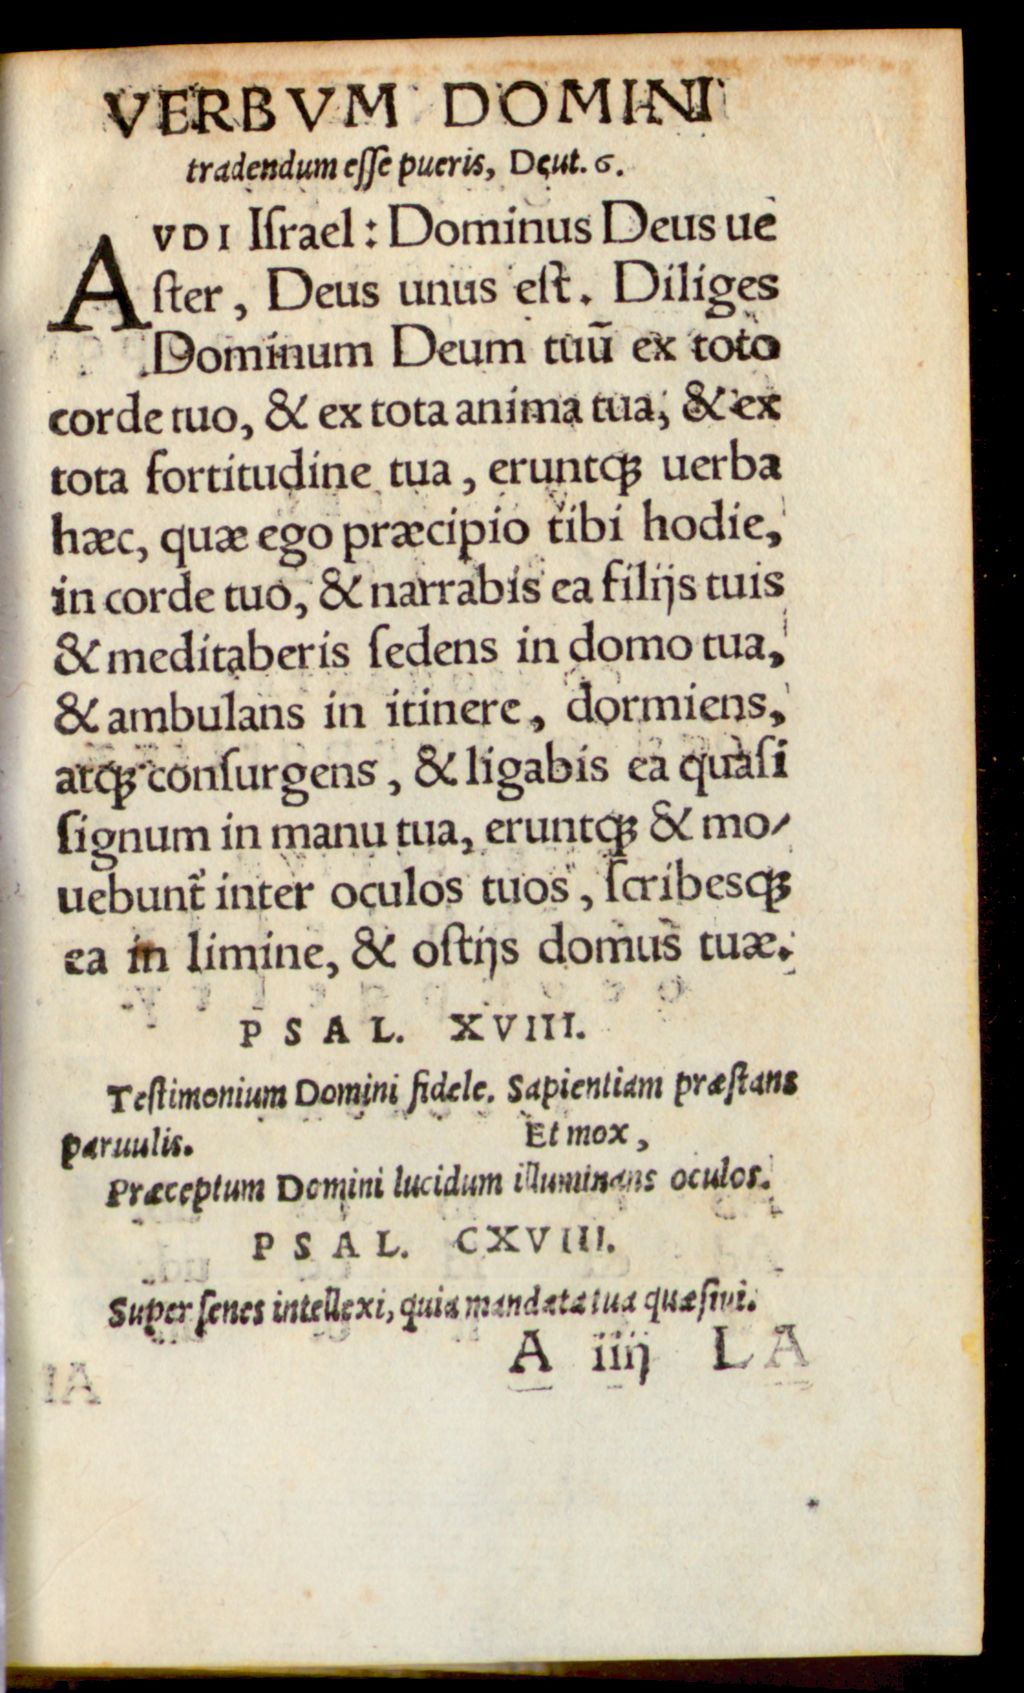 VERBVM DOMINI
tradendum eſſe pueris, Deut. 6.
AVDI Iſrael: Dominus Deus ue
ſter, Deus unus eſt. Diliges
Dominum Deum tuū ex toto
corde tuo, & ex tota anima tua, & ex
tota fortitudine tua, eruntꝙ uerba
hæc, quæ ego præcipio tibi hodie,
in corde tuo, & narrabis ea filijs tuis
& meditaberis ſedens in domo tua,
& ambulans in itinere, dormiens,
atꝙ conſurgens, & ligabis ea quaſi
ſignum in manu tua, eruntꝙ & mo/
uebunt᷑ inter oculos tuos, ſcribesꝙ
ea in limine, & oſtijs domus tuæ.
PSAL. XVIII.
Teſtimonium Domini fidele. Sapientiam præſtans
paruulis. Et mox,
Præceptum Domini lucidum illuminans oculos.
PSAL. CXVIII.
Super ſenes intellexi, quia mandata tua quæſiui.
A iiij LA